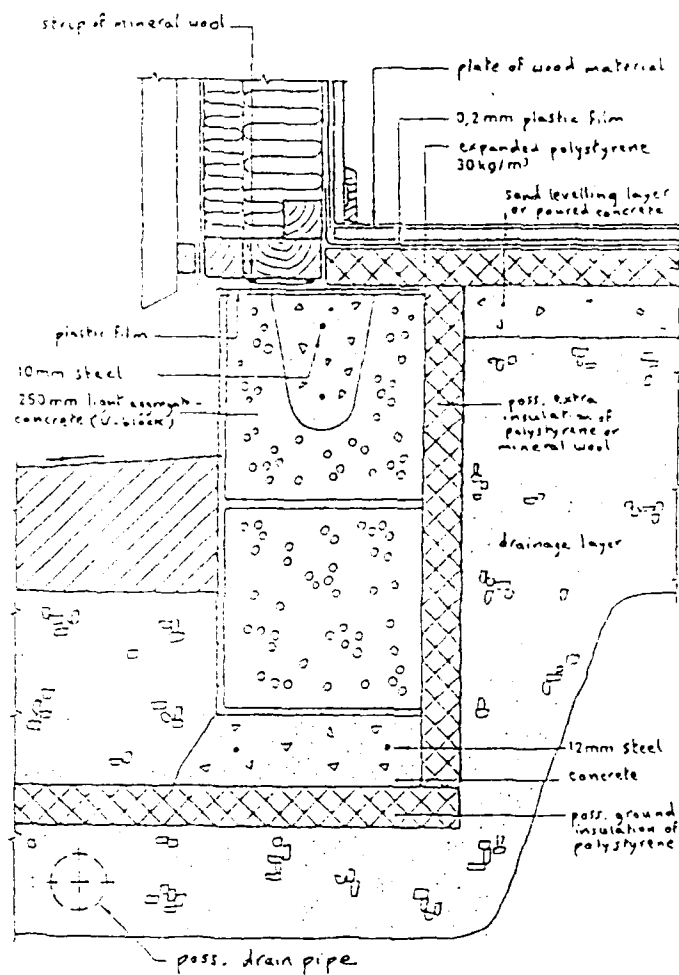 strip of mineral wool
plate of wood material
0,2mm plastic film
expanded polystyrene
30kg/m³
sand levelling layer
or poured concrete
plastic film
10mm steel
250mm light aggregate-
concrete (U-block)
poss. extra
insulation of
polystyrene or
mineral wool
drainage layer
12mm steel
concrete
poss. ground
insulation of
polystyrene
poss. drain pipe